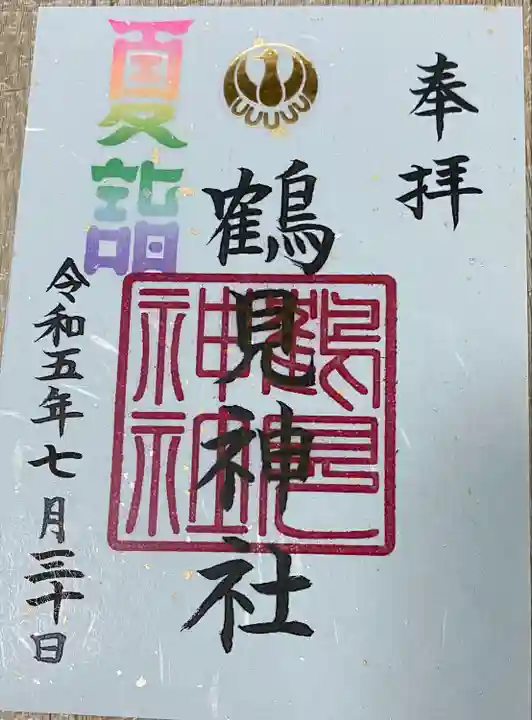 奉拝
鶴見神社
鶴見
神社
夏詣
令和五年七月三十日